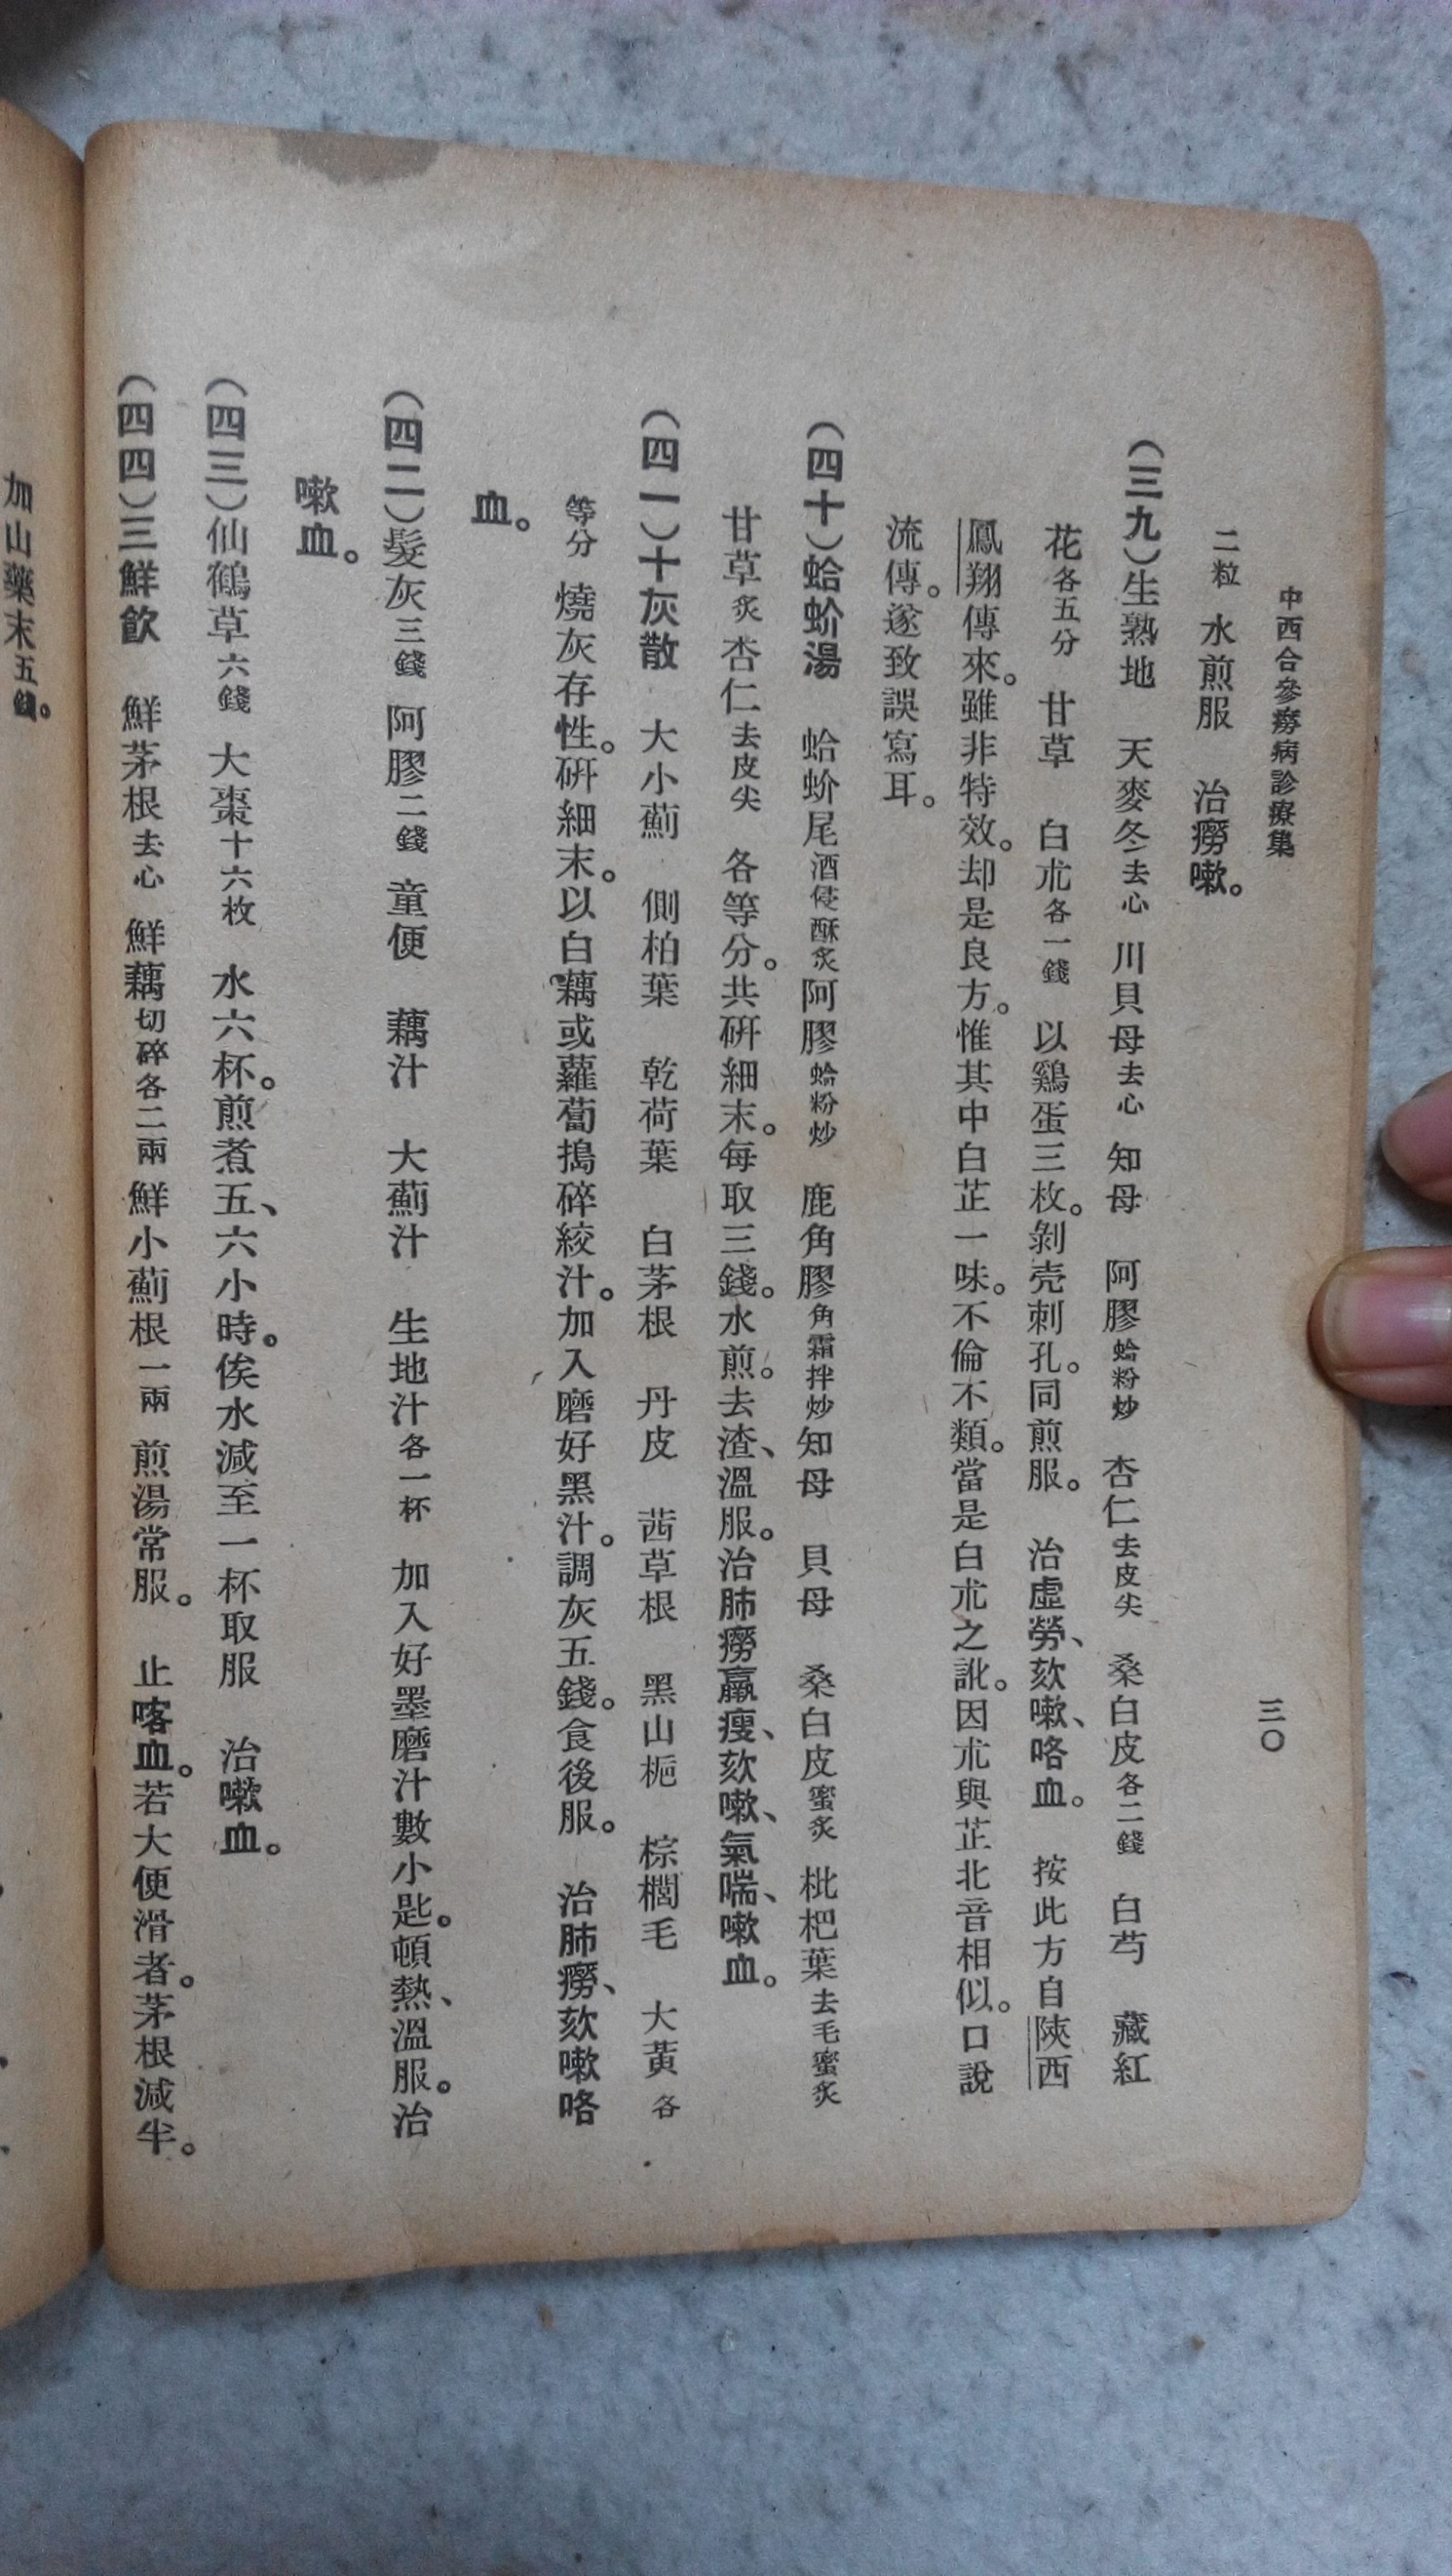 中西合參癆病診療集
三〇
二粒　水煎服　治癆嗽。
（三九）生熟地　天麥冬去心　川貝母去心　知母　阿膠蛤粉炒　杏仁去皮尖　桑白皮各二錢　白芍　藏紅
花各五分　甘草　白朮各一錢　以鷄蛋三枚。剝壳刺孔。同煎服。　治虛勞、欬嗽、咯血。　按此方自陝西
鳳翔傳來。雖非特效。却是良方。惟其中白芷一味。不倫不類。當是白朮之訛。因朮與芷北音相似。口說
流傳。遂致誤寫耳。
（四十）蛤蚧湯　蛤蚧尾酒侵酥炙　阿膠蛤粉炒　鹿角膠角霜拌炒　知母　貝母　桑白皮蜜炙　枇杷葉去毛蜜炙
甘草炙　杏仁去皮尖　各等分。共硏細末。每取三錢。水煎。去渣、溫服。治肺癆羸瘦、欬嗽、氣喘、嗽血。
（四一）十灰散　大小薊　側柏葉　乾荷葉　白茅根　丹皮　茜草根　黑山梔　棕櫚毛　大黃各
等分　燒灰存性。硏細末。以白藕或蘿蔔搗碎絞汁。加入磨好黑汁。調灰五錢。食後服。　治肺癆、欬嗽咯
血。
（四二）髮灰三錢　阿膠二錢　童便　藕汁　大薊汁　生地汁各一杯　加入好墨磨汁數小匙。頓熱、溫服。治
嗽血。
（四三）仙鶴草六錢　大棗十六枚　水六杯。煎煮五、六小時。俟水減至一杯取服　治嗽血。
（四四）三鮮飲　鮮茅根去心　鮮藕切碎各二兩　鮮小薊根一兩　煎湯常服。　止喀血。若大便滑者。茅根減半。
加山藥末五錢。